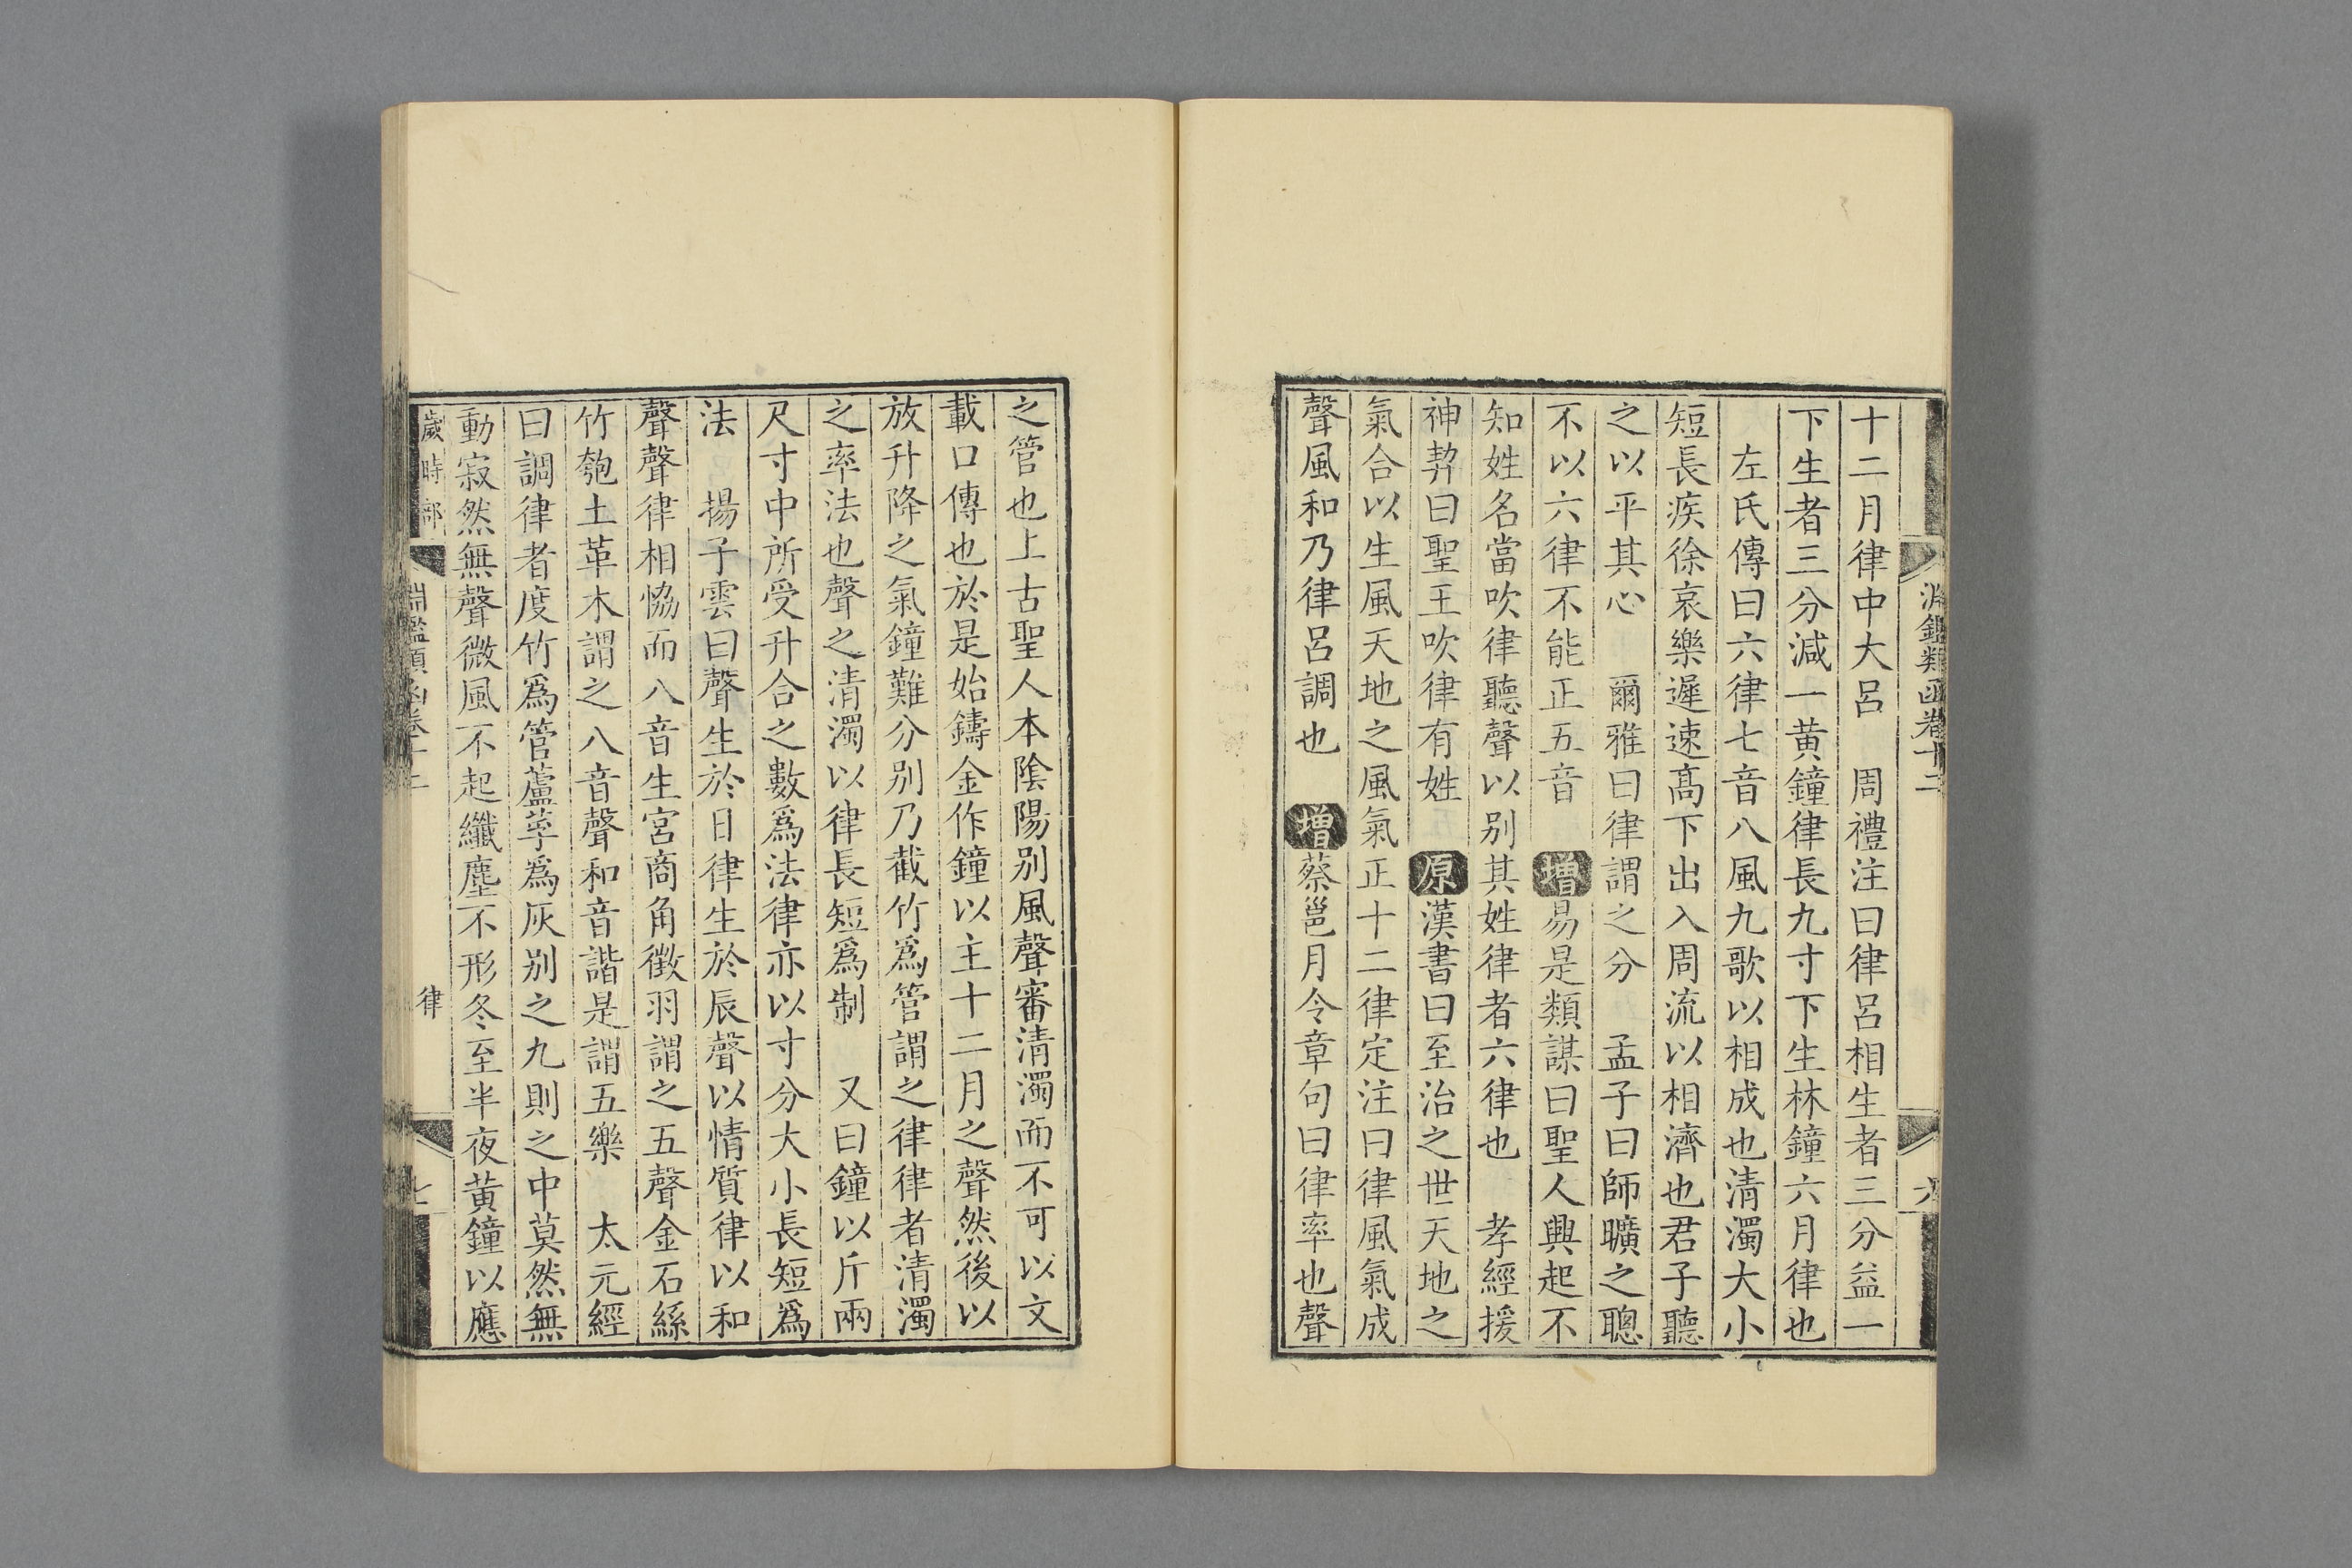 淵鑑類函卷十二
六
十二月律中大呂　周禮注曰律呂相生者三分益一
下生者三分減一黃鐘律長九寸下生林鐘六月律也
左氏傳曰六律七音八風九歌以相成也清濁大小
短長疾徐哀樂遲速高下出入周流以相濟也君子聽
之以平其心　爾雅曰律謂之分　孟子曰師曠之聰
不以六律不能正五音　增易是類謀曰聖人興起不
知姓名當吹律聽聲以别其姓律者六律也　孝經援
神契曰聖王吹律有姓　原漢書曰至治之世天地之
氣合以生風天地之風氣正十二律定注曰律風氣成
聲風和乃律呂調也　增蔡邕月令章句曰律率也聲
之管也上古聖人本陰陽别風聲審清濁而不可以文
載口傳也於是始鑄金作鐘以主十二月之聲然後以
放升降之氣鐘難分别乃截竹爲管謂之律律者清濁
之率法也聲之清濁以律長短爲制　又曰鐘以斤兩
尺寸中所受升合之數爲法律亦以寸分大小長短爲
法　揚子雲曰聲生於日律生於辰聲以情質律以和
聲聲律相恊而八音生宮商角徵羽謂之五聲金石絲
竹匏土革木謂之八音聲和音諧是謂五樂　太元經
曰調律者度竹爲管蘆莩爲灰别之九則之中莫然無
動寂然無聲微風不起纖塵不形冬至半夜黃鐘以應
歲時部
淵鑑類函卷十二
律
七